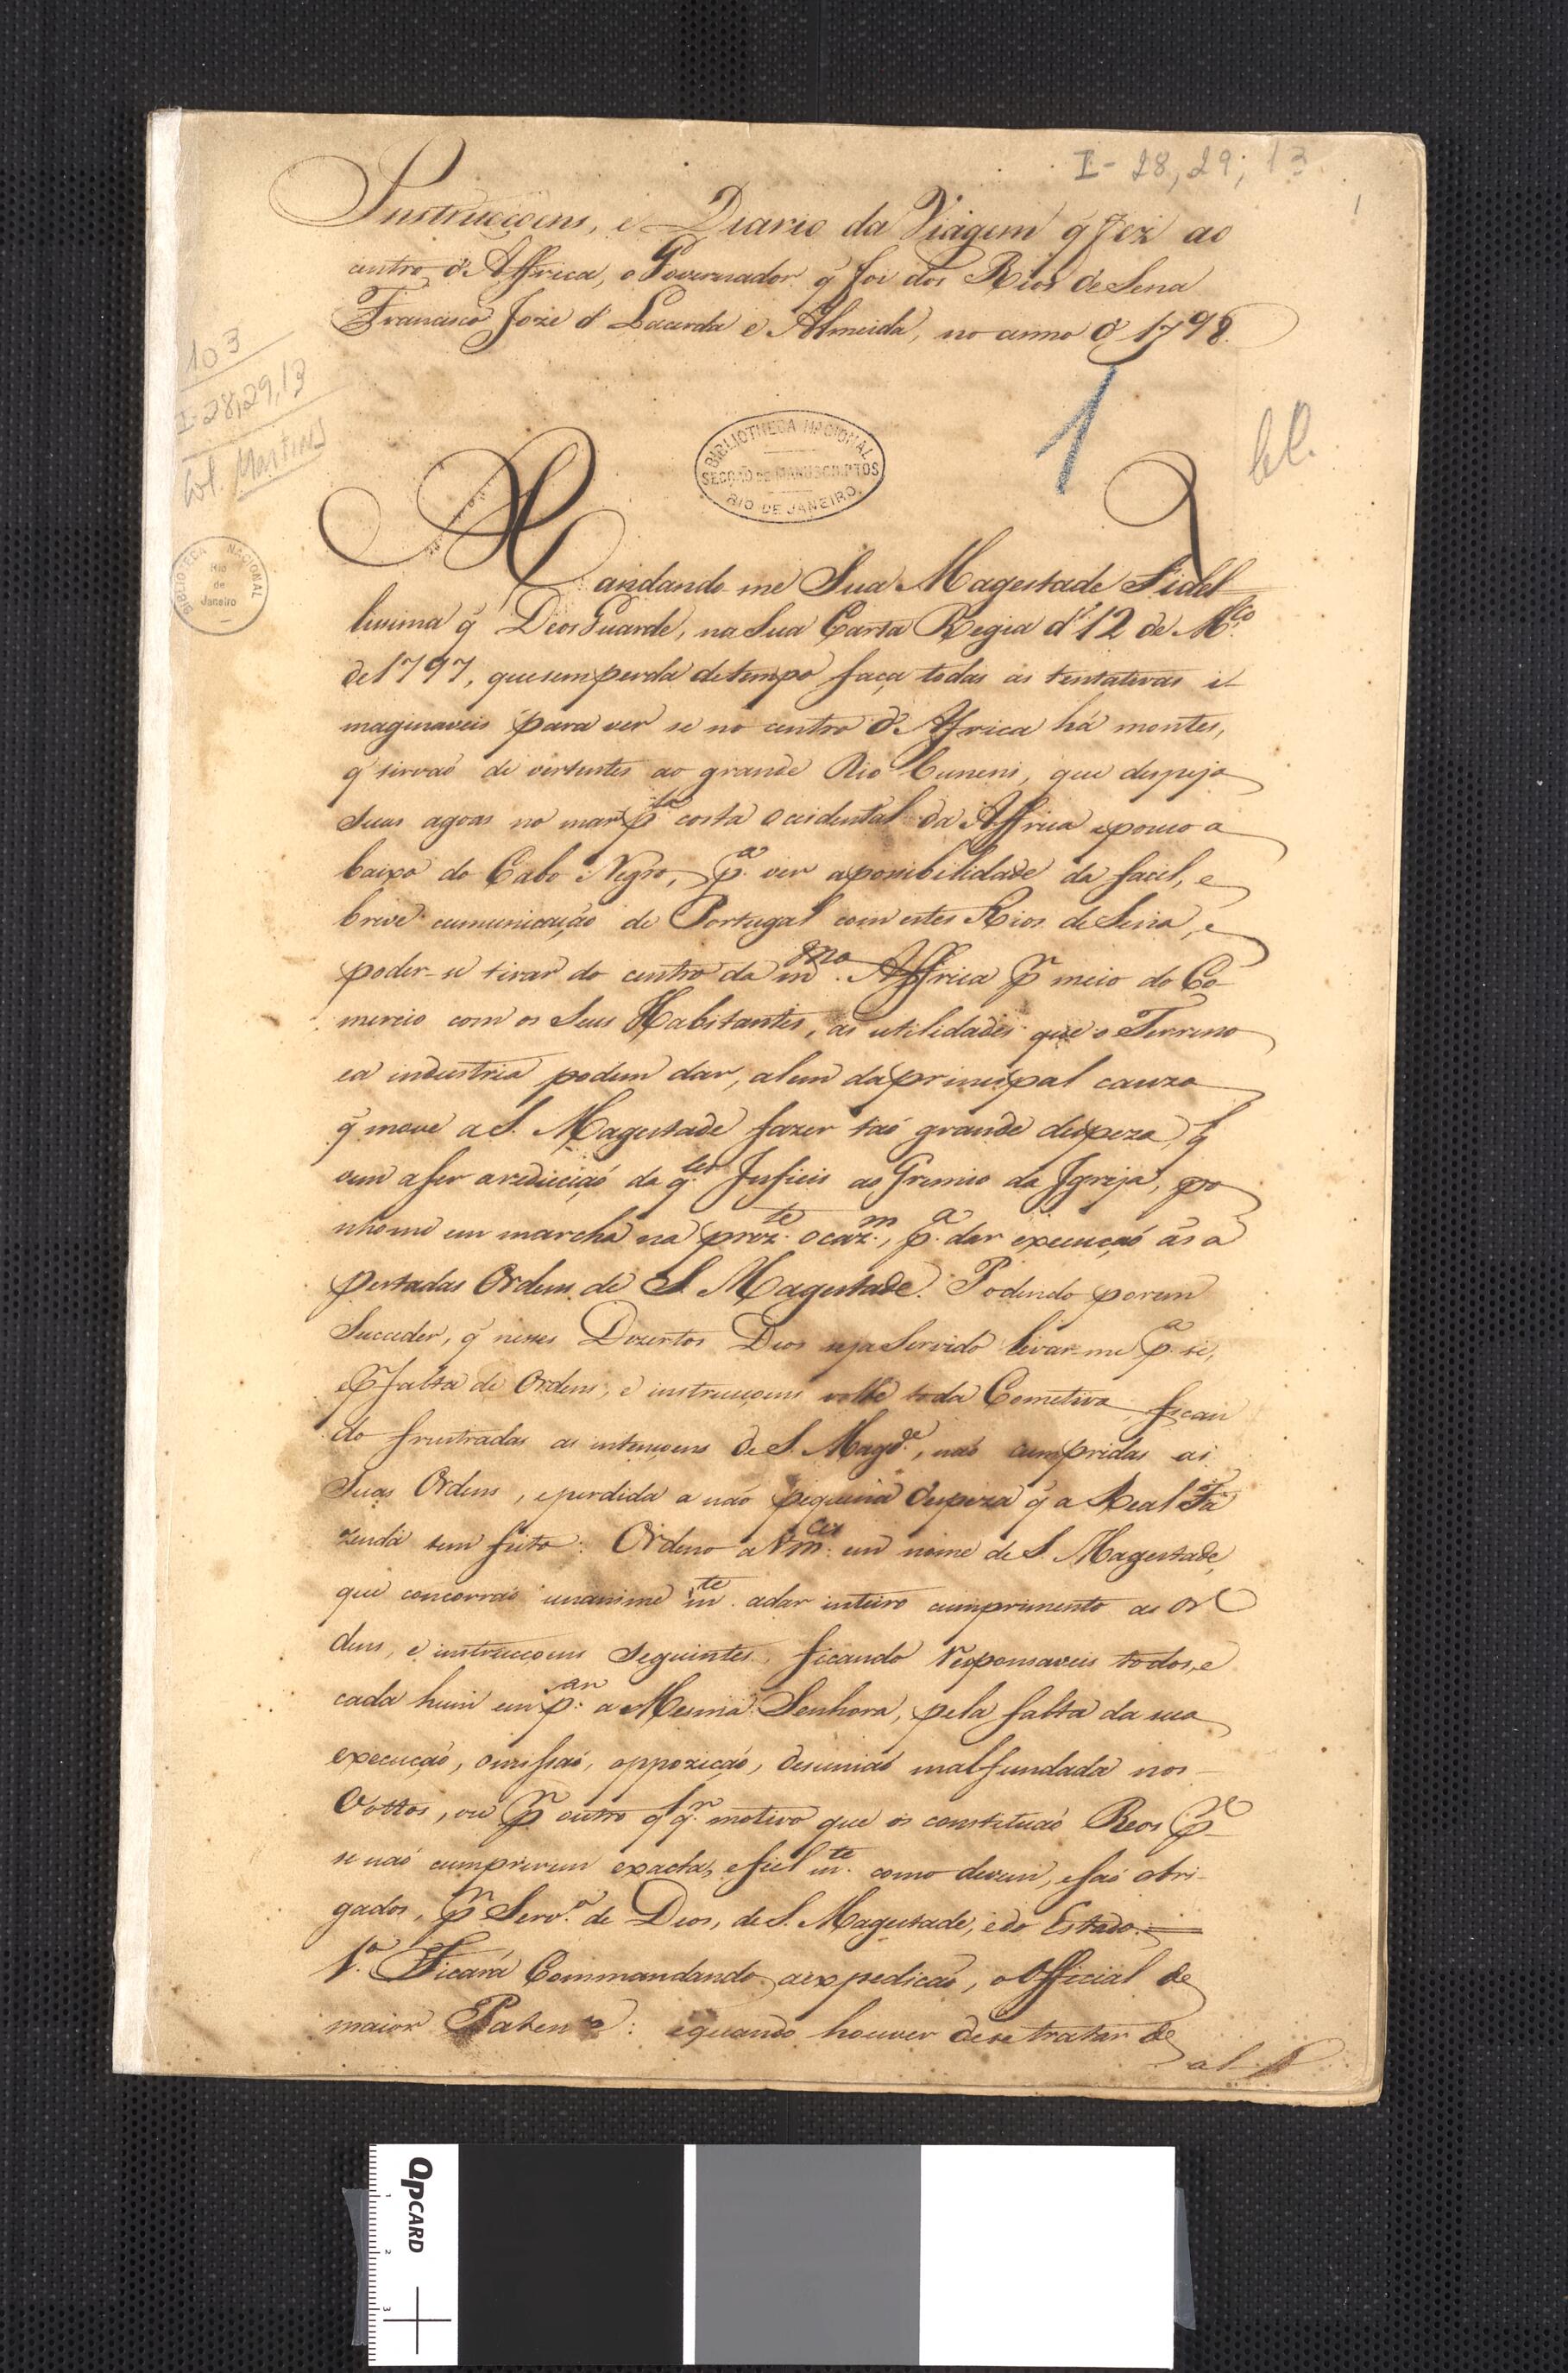 I-28,29,13
1
Instrucçoens, e Diario da Viagem q̃ fez ao
centro d'Affrica, o Governador q̃ foi dos Rios de Sena
Francisco Joze d' Lacerda e Almeida, no anno d' 1798.
103
I-28,29,13
Col. Martins
1
BIBLIOTHECA NACIONAL
SECÇÃO DE MANUSCRIPTOS
RIO DE JANEIRO
BIBLIOTECA NACIONAL
Rio
de
Janeiro
Mandando me Sua Magestade Fidel
lissima q̃ Deos Guarde, na Sua Carta Regia d' 12 de M.ço
de 1797, que sem perda de tempo faça todas as tentativas i-
maginaveis para ver se no centro d'Africa há montes,
q̃ sirvaõ de vertentes ao grande Rio Cuneni, que despeja
suas agoas no mar p.la costa occidental da Affrica e pouco a
baixo do Cabo Negro, p.a ver a possibilidade da facil, e
breve cumunicação de Portugal com estes Rios de Sena, e
poder-se tirar do centro da m.ma Affrica p.r meio do Co-
mercio com os Seus Habitantes, as utilidades que o Terreno
e a industria podem dar, alem da principal cauza
q̃ move a S. Magestade fazer taõ grande despeza, q̃
vem a ser a reducçaõ da q.les Infieis ao Gremio da Igreja, po
nho me em marcha na prez.te ocaz.m, p.a dar execuçaõ ás a
pertadas Ordens de S. Magestade. Podendo porem
Succeder, q̃ nesses Dezertos Deos seja Servido levar-me p.a si,
e p.r falta de Ordens, e instrucçoens volte toda Cometiva, fican
do frustradas as intençoens de S. Mag.de, naõ cumpridas as
Suas Ordens, e perdida a naõ pequena despeza q̃ a Real Fa
zenda tem feito: Ordeno a Vm.ces em nome de S. Magestade,
que concorraõ unanime m.te a dar inteiro cumprimento as Or
dens, e instrucçoens Seguintes, ficando responsaveis todos, e
cada hum em p.ar a Mesma Senhora, pela falta da sua
execução, omissaõ, oppozição, desuniaõ mal fundada nos
Vottos, ou p.r outro q̃ q.r motivo que os constituaõ Reos p.r
se naõ cumprirem exacta, e fiel m.te como devem, e saõ obri-
gados, p.r Serv.o de Deos, de S. Magestade, e do Estado.
1.o Ficará Commandando a expedição, o Official de
maior Patente: e quando houver de se tratar de
al